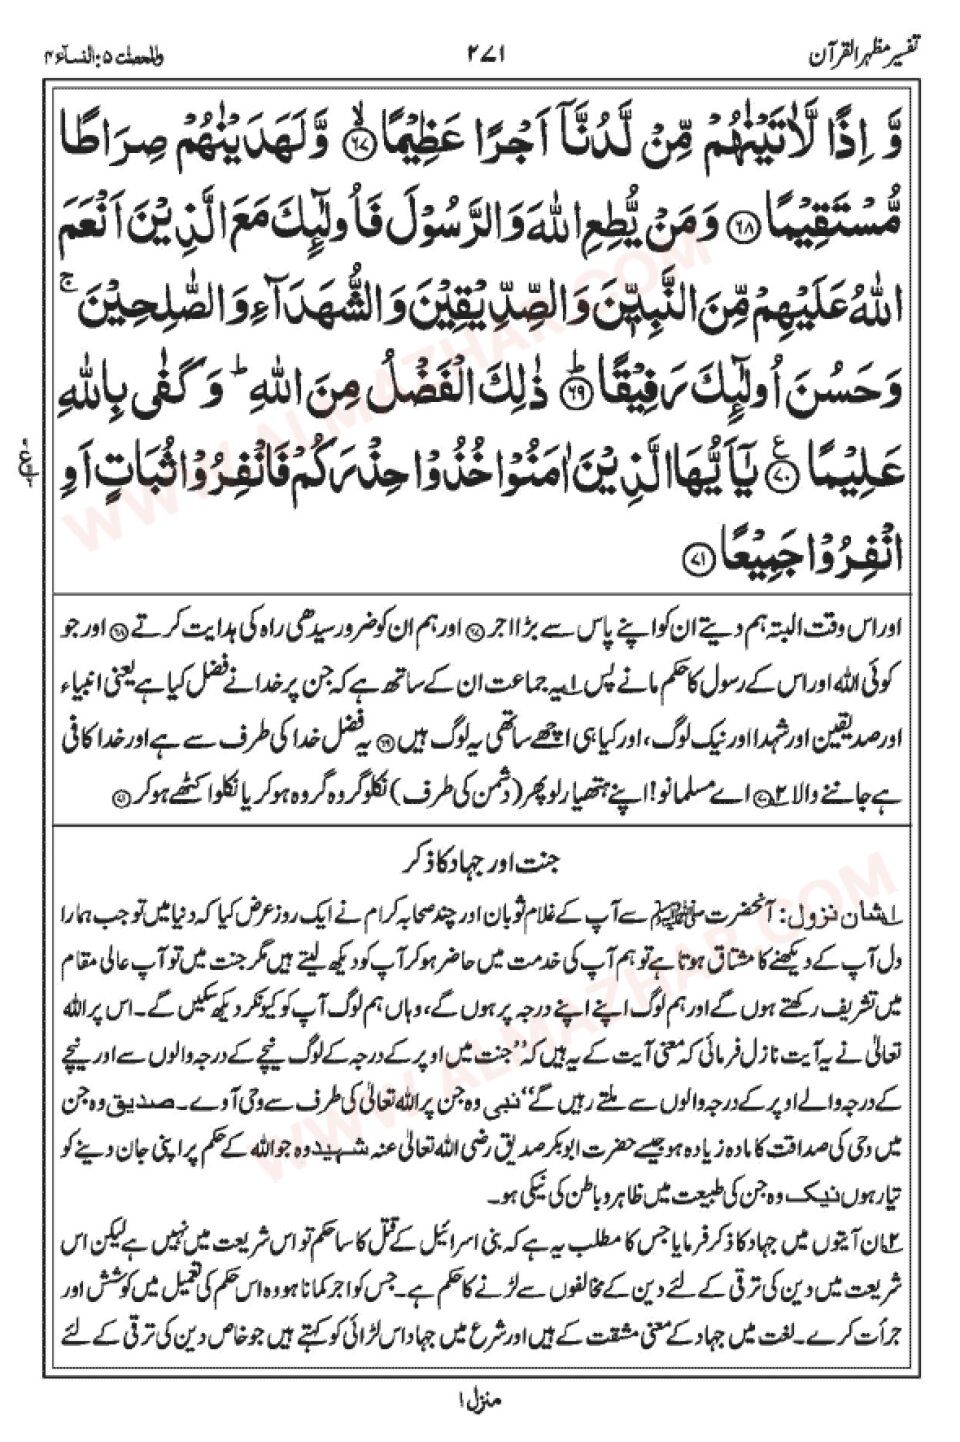 تفسیر مظہر القرآن
۲۷۱
والمحصنٰت ۵: النسآء ۴
وَّ اِذًا لَّاٰتَیْنٰهُمْ مِّنْ لَّدُنَّاۤ اَجْرًا عَظِیْمًا ۙ﴿۶۷﴾ وَّ لَهَدَیْنٰهُمْ صِرَاطًا
مُّسْتَقِیْمًا ﴿۶۸﴾ وَ مَنْ یُّطِعِ اللّٰهَ وَ الرَّسُوْلَ فَاُولٰٓئِكَ مَعَ الَّذِیْنَ اَنْعَمَ
اللّٰهُ عَلَیْهِمْ مِّنَ النَّبِیّٖنَ وَ الصِّدِّیْقِیْنَ وَ الشُّهَدَآءِ وَ الصّٰلِحِیْنَ ۚ
وَ حَسُنَ اُولٰٓئِكَ رَفِیْقًا ؕ﴿۶۹﴾ ذٰلِكَ الْفَضْلُ مِنَ اللّٰهِ ؕ وَ كَفٰی بِاللّٰهِ
عَلِیْمًا ﴿۷۰﴾ یٰۤاَیُّهَا الَّذِیْنَ اٰمَنُوْا خُذُوْا حِذْرَكُمْ فَانْفِرُوْا ثُبَاتٍ اَوِ
انْفِرُوْا جَمِیْعًا ﴿۷۱﴾
اور اس وقت البتہ ہم دیتے ان کو اپنے پاس سے بڑا اجر ﴿۶۷﴾ اور ہم ان کو ضرور سیدھی راہ کی ہدایت کرتے ﴿۶۸﴾ اور جو
کوئی اللہ اور اس کے رسول کا حکم مانے پس ۱؎ یہ جماعت ان کے ساتھ ہے کہ جن پر خدا نے فضل کیا ہے یعنی انبیاء
اور صدیقین اور شہدا اور نیک لوگ، اور کیا ہی اچھے ساتھی یہ لوگ ہیں ﴿۶۹﴾ یہ فضل خدا کی طرف سے ہے اور خدا کافی
ہے جاننے والا ۲؎ ﴿۷۰﴾ اے مسلمانو! اپنے ہتھیار لو پھر (دشمن کی طرف) نکلو گروہ گروہ ہو کر یا نکلو اکٹھے ہو کر ﴿۷۱﴾
جنت اور جہاد کا ذکر
۱؎ شان نزول: آنحضرت ﷺ سے آپ کے غلام ثوبان اور چند صحابہ کرام نے ایک روز عرض کیا کہ دنیا میں تو جب ہمارا
دل آپ کے دیکھنے کا مشتاق ہوتا ہے تو ہم آپ کی خدمت میں حاضر ہو کر آپ کو دیکھ لیتے ہیں مگر جنت میں تو آپ عالی مقام
میں تشریف رکھتے ہوں گے اور ہم لوگ اپنے اپنے درجہ پر ہوں گے، وہاں ہم لوگ آپ کو کیونکر دیکھ سکیں گے۔ اس پر اللہ
تعالیٰ نے یہ آیت نازل فرمائی کہ معنی آیت کے یہ ہیں کہ ’’جنت میں اوپر کے درجہ کے لوگ نیچے کے درجہ والوں سے اور نیچے
کے درجہ والے اوپر کے درجہ والوں سے ملتے رہیں گے‘‘ نبی وہ جن پر اللہ تعالیٰ کی طرف سے وحی آوے۔ صدیق وہ جن
میں وحی کی صداقت کا مادہ زیادہ ہو جیسے حضرت ابوبکر صدیق رضی اللہ تعالیٰ عنہ شہید وہ جو اللہ کے حکم پر اپنی جان دینے کو
تیار ہوں نیک وہ جن کی طبیعت میں ظاہر و باطن کی نیکی ہو۔
۲؎ ان آیتوں میں جہاد کا ذکر فرمایا جس کا مطلب یہ ہے کہ بنی اسرائیل کے قتل کا سا حکم تو اس شریعت میں نہیں ہے لیکن اس
شریعت میں دین کی ترقی کے لئے دین کے مخالفوں سے لڑنے کا حکم ہے۔ جس کو اجر کمانا ہو وہ اس حکم کی تعمیل میں کوشش اور
جرأت کرے۔ لغت میں جہاد کے معنی مشقت کے ہیں اور شرع میں جہاد اس لڑائی کو کہتے ہیں جو خاص دین کی ترقی کے لئے
منزل ۱
WWW.ALMAZHAR.COM
WWW.ALMAZHAR.COM